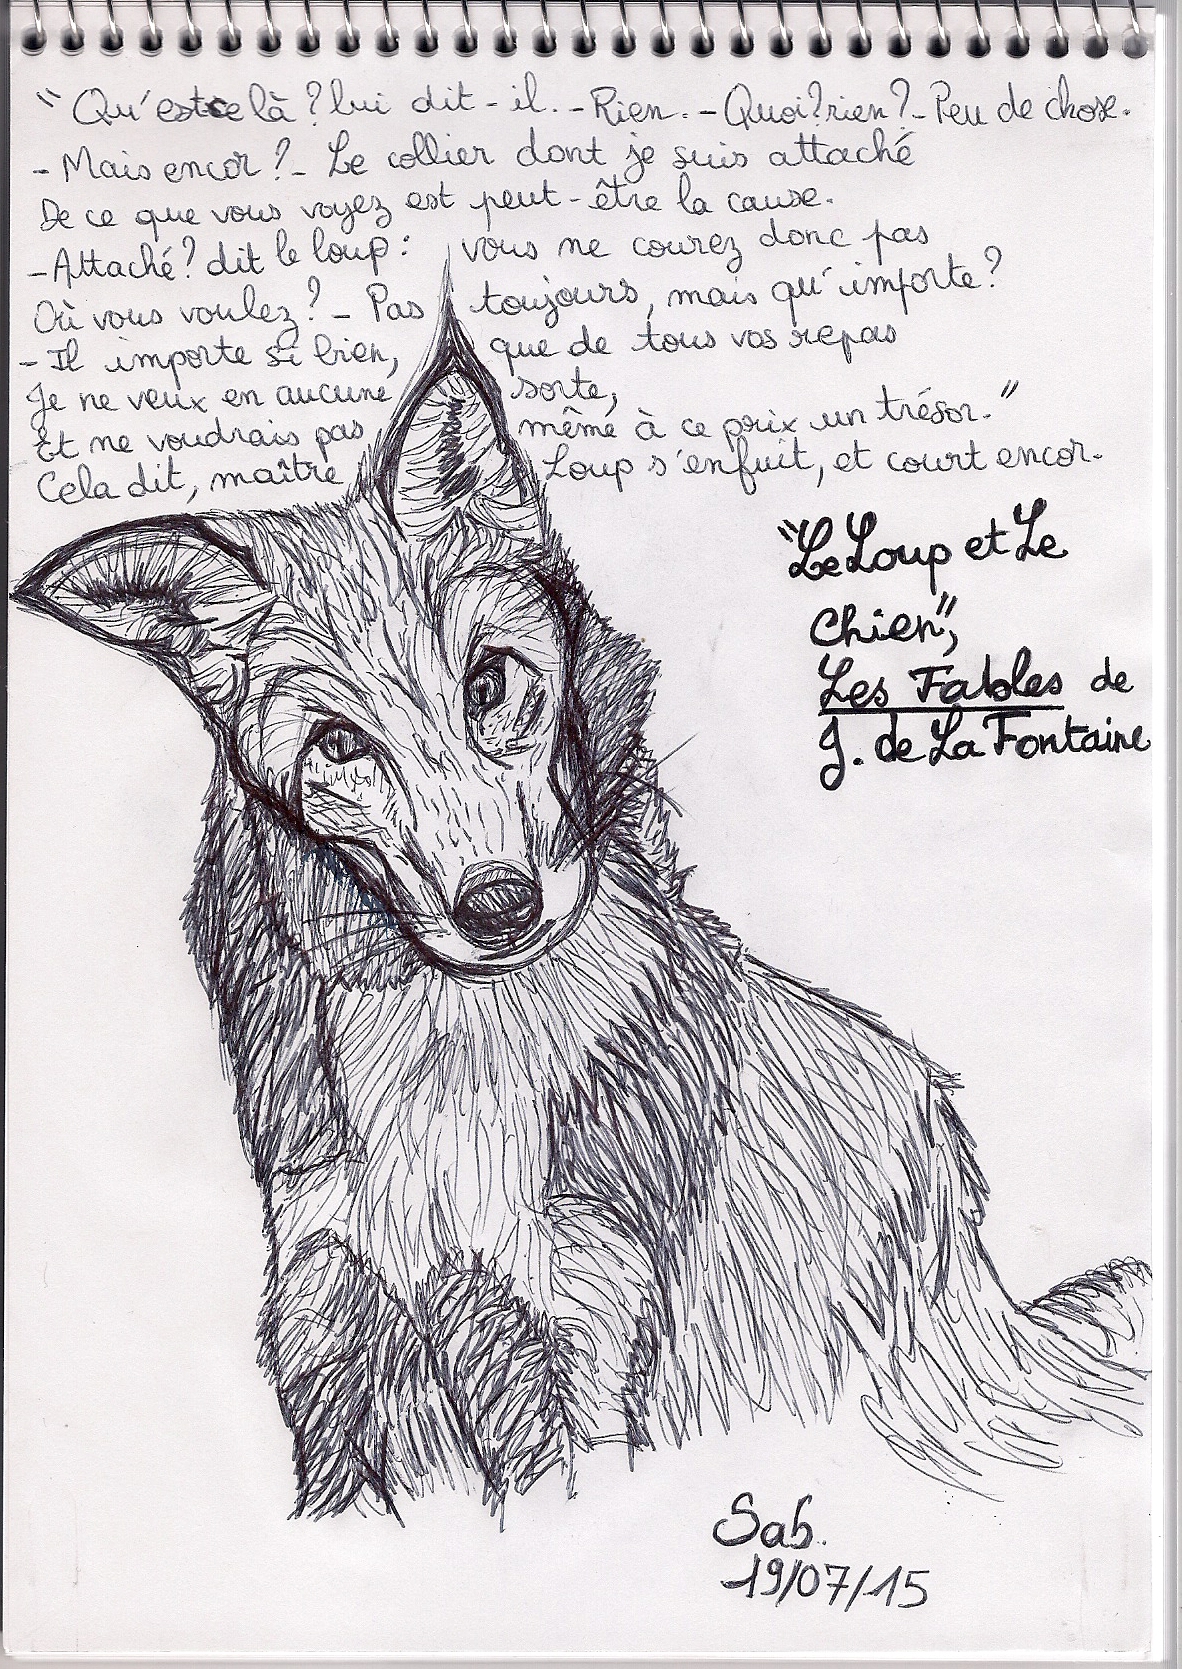 "Qu'est ce là ? lui dit-il. - Rien. - Quoi ? rien ? - Peu de chose.
- Mais encor ? - Le collier dont je suis attaché
De ce que vous voyez est peut-être la cause.
- Attaché ? dit le loup : vous ne courez donc pas
Où vous voulez ? - Pas toujours, mais qu'importe ?
- Il importe si bien, que de tous vos repas
Je ne veux en aucune sorte,
Et ne voudrais pas même à ce prix un trésor."
Cela dit, maître Loup s'enfuit, et court encor.
"Le Loup et Le
Chien",
Les Fables de
J. de La Fontaine
Sab.
19/07/15